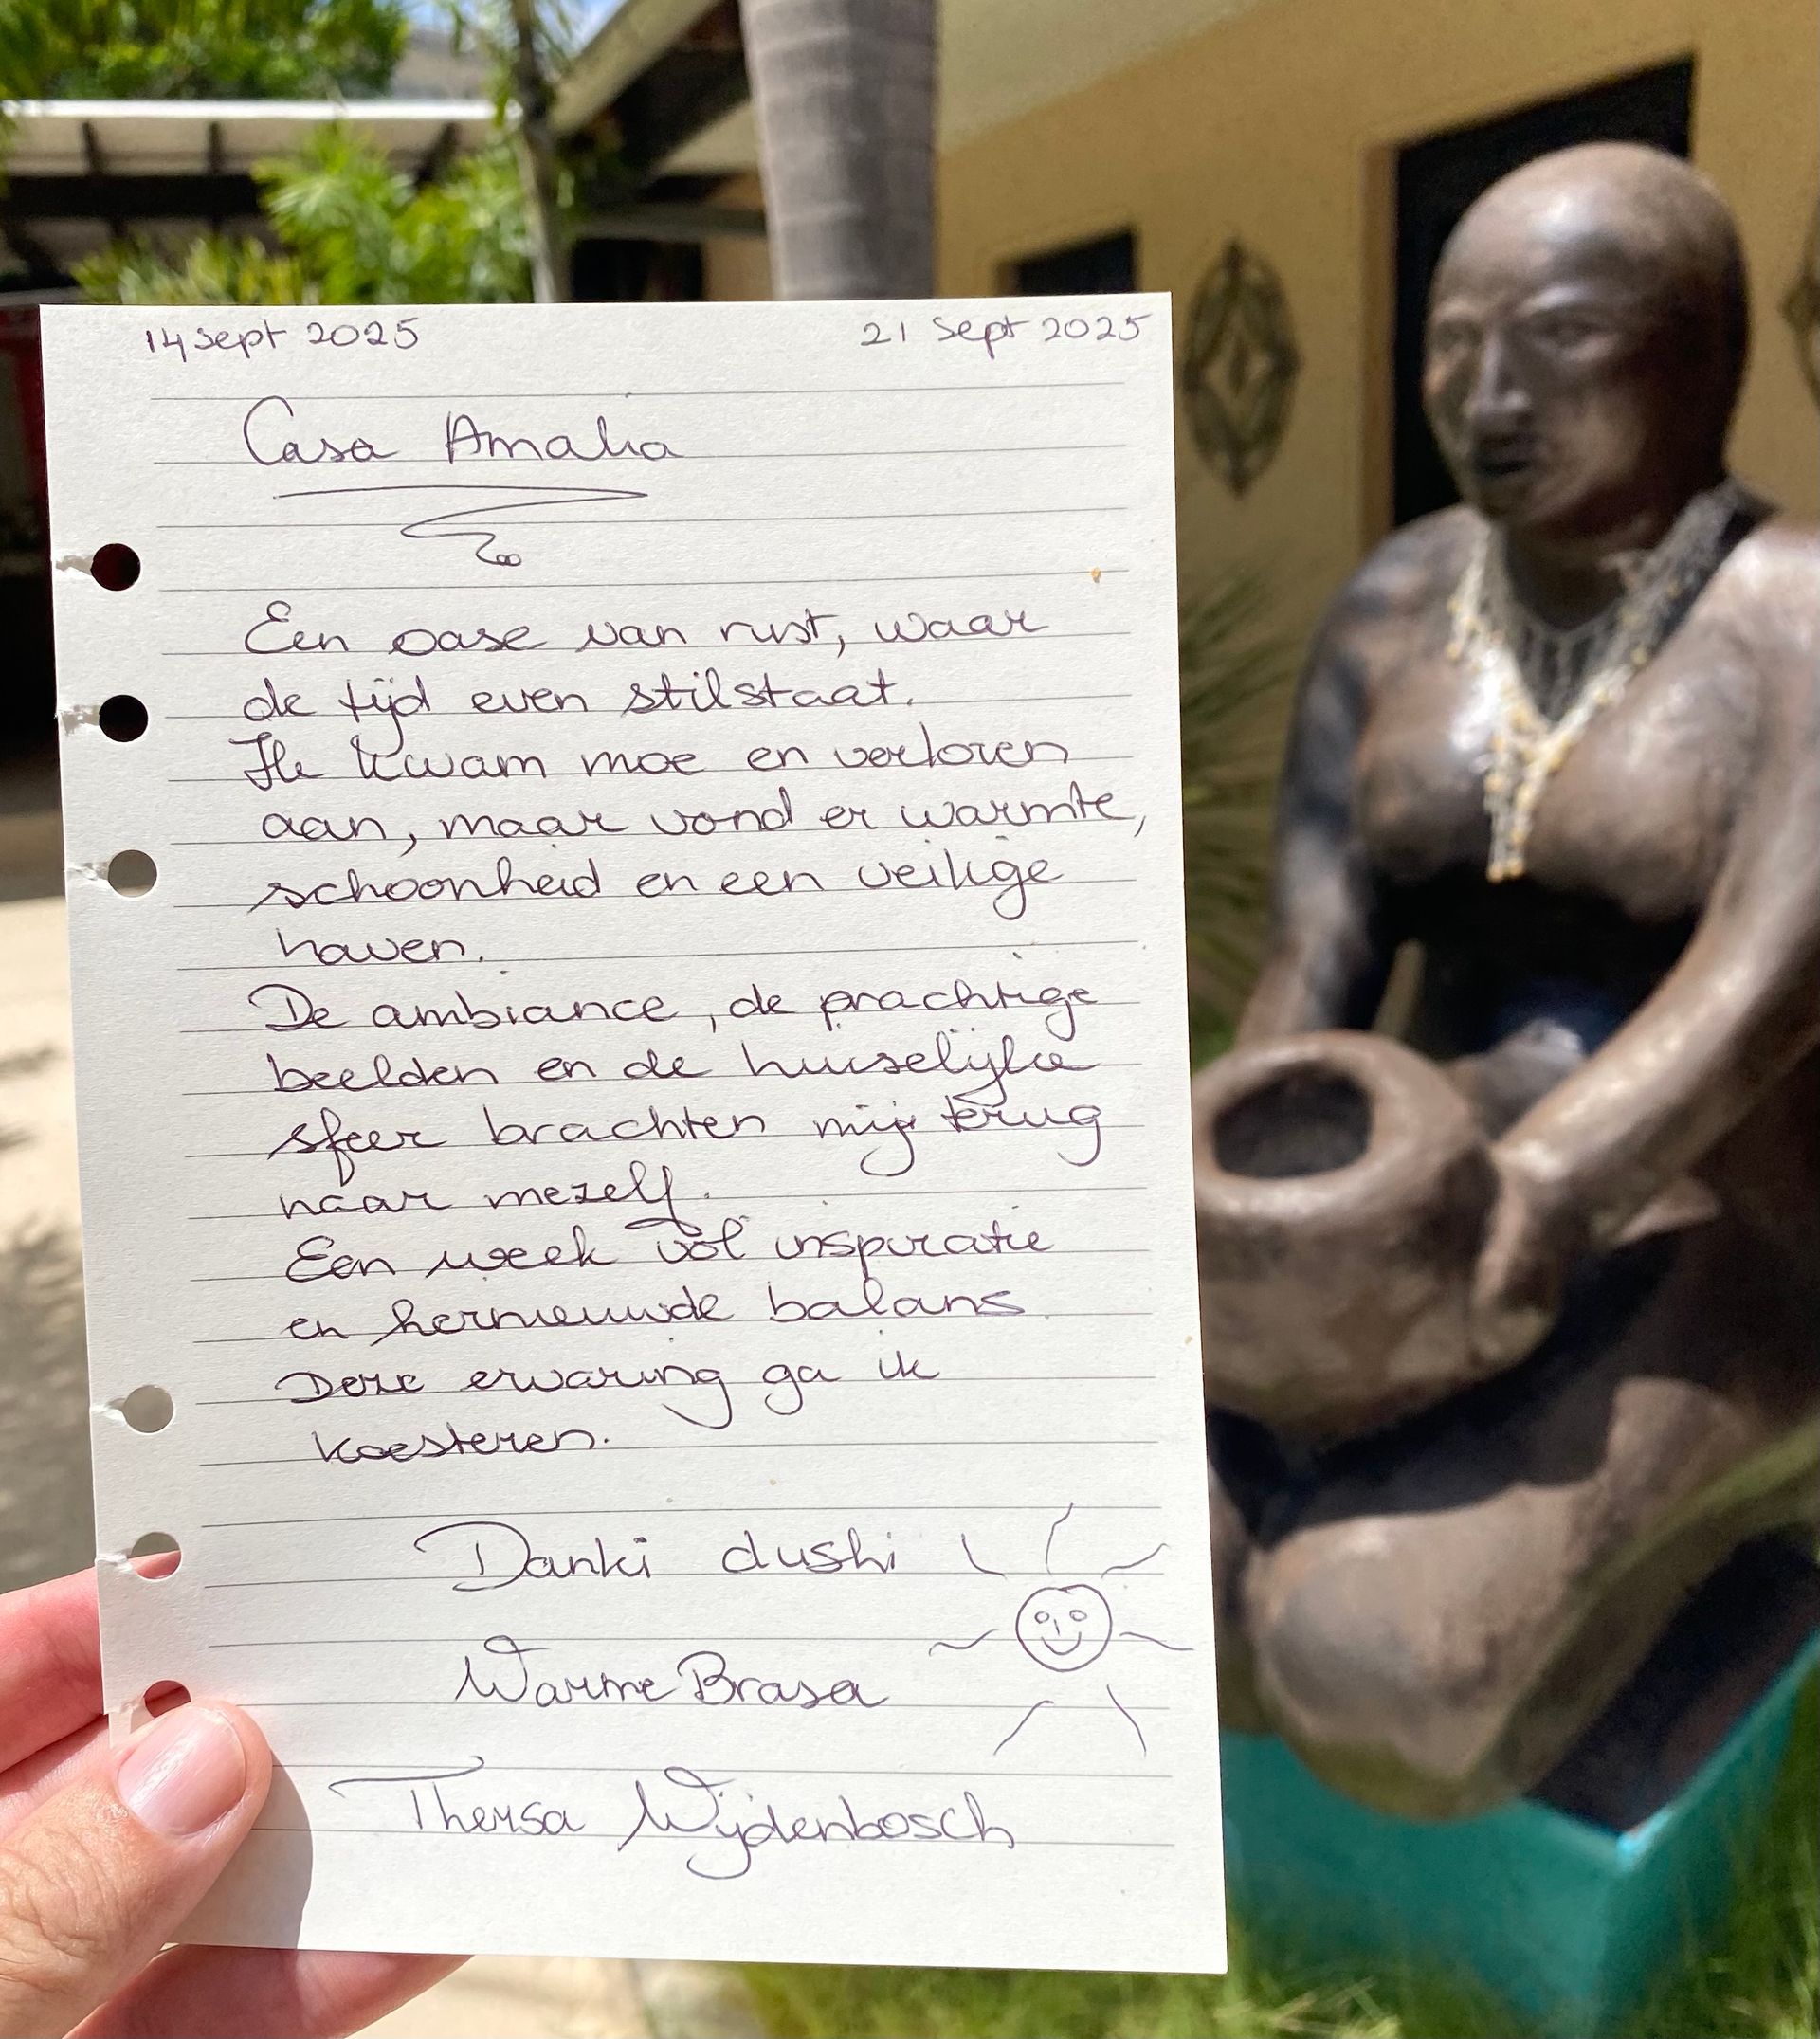 14 sept 2025 21 sept 2025
Casa Amalia
Een oase van rust, waar
de tijd even stilstaat.
Ik kwam moe en verloren
aan, maar vond er warmte,
schoonheid en een veilige
haven.
De ambiance, de prachtige
beelden en de huiselijke
sfeer brachten mij terug
naar mezelf.
Een week vol inspiratie
en hernieuwde balans.
Deze ervaring ga ik
koesteren.
Danki dushi
Warme Brasa
Thersa Wijdenbosch